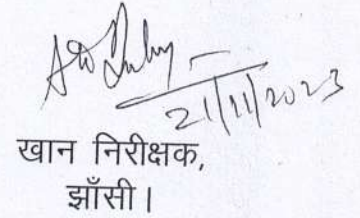 21/11/2023
खान निरीक्षक,
झाँसी।